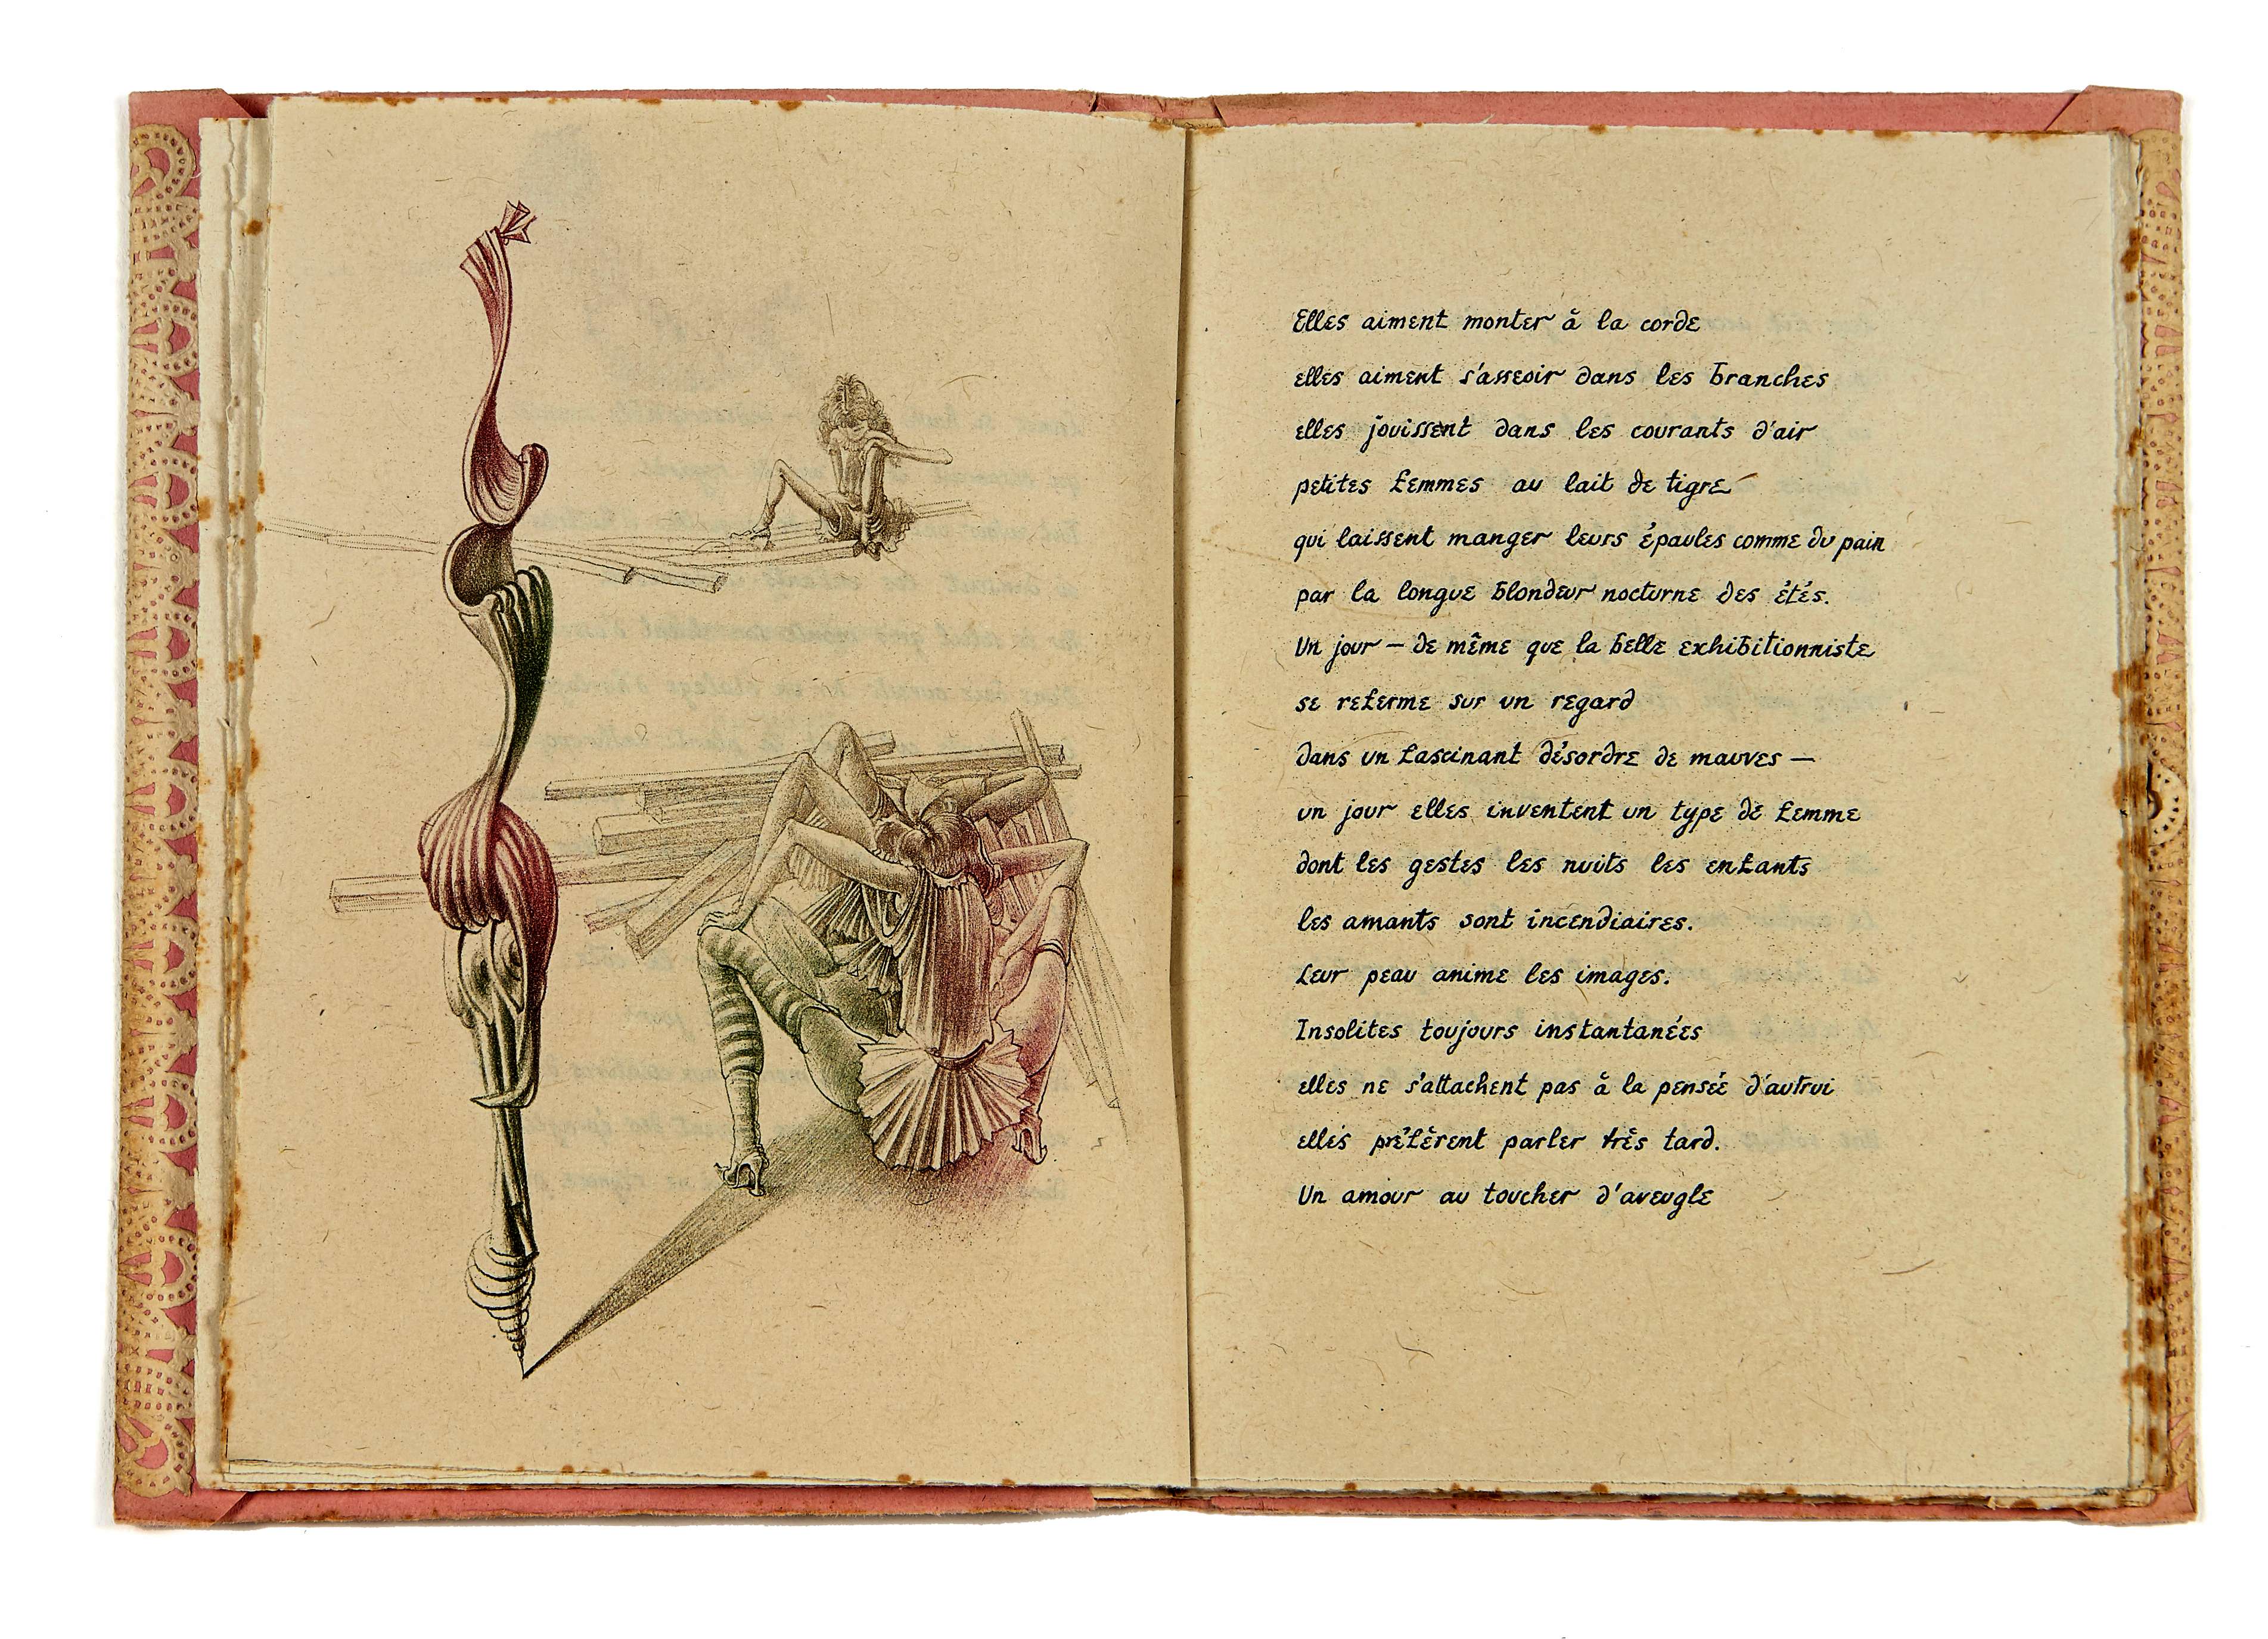 Elles aiment monter à la corde
elles aiment s'asseoir dans les branches
elles jouissent dans les courants d'air
petites femmes au lait de tigre
qui laissent manger leurs épaules comme du pain
par la longue blondeur nocturne des étés.
Un jour – de même que la belle exhibitionniste
se referme sur un regard
dans un fascinant désordre de mauves –
un jour elles inventent un type de femme
dont les gestes les nuits les enfants
les amants sont incendiaires.
Leur peau anime les images.
Insolites toujours instantanées
elles ne s'attachent pas à la pensée d'autrui
elles préfèrent parler très tard.
Un amour au toucher d'aveugle